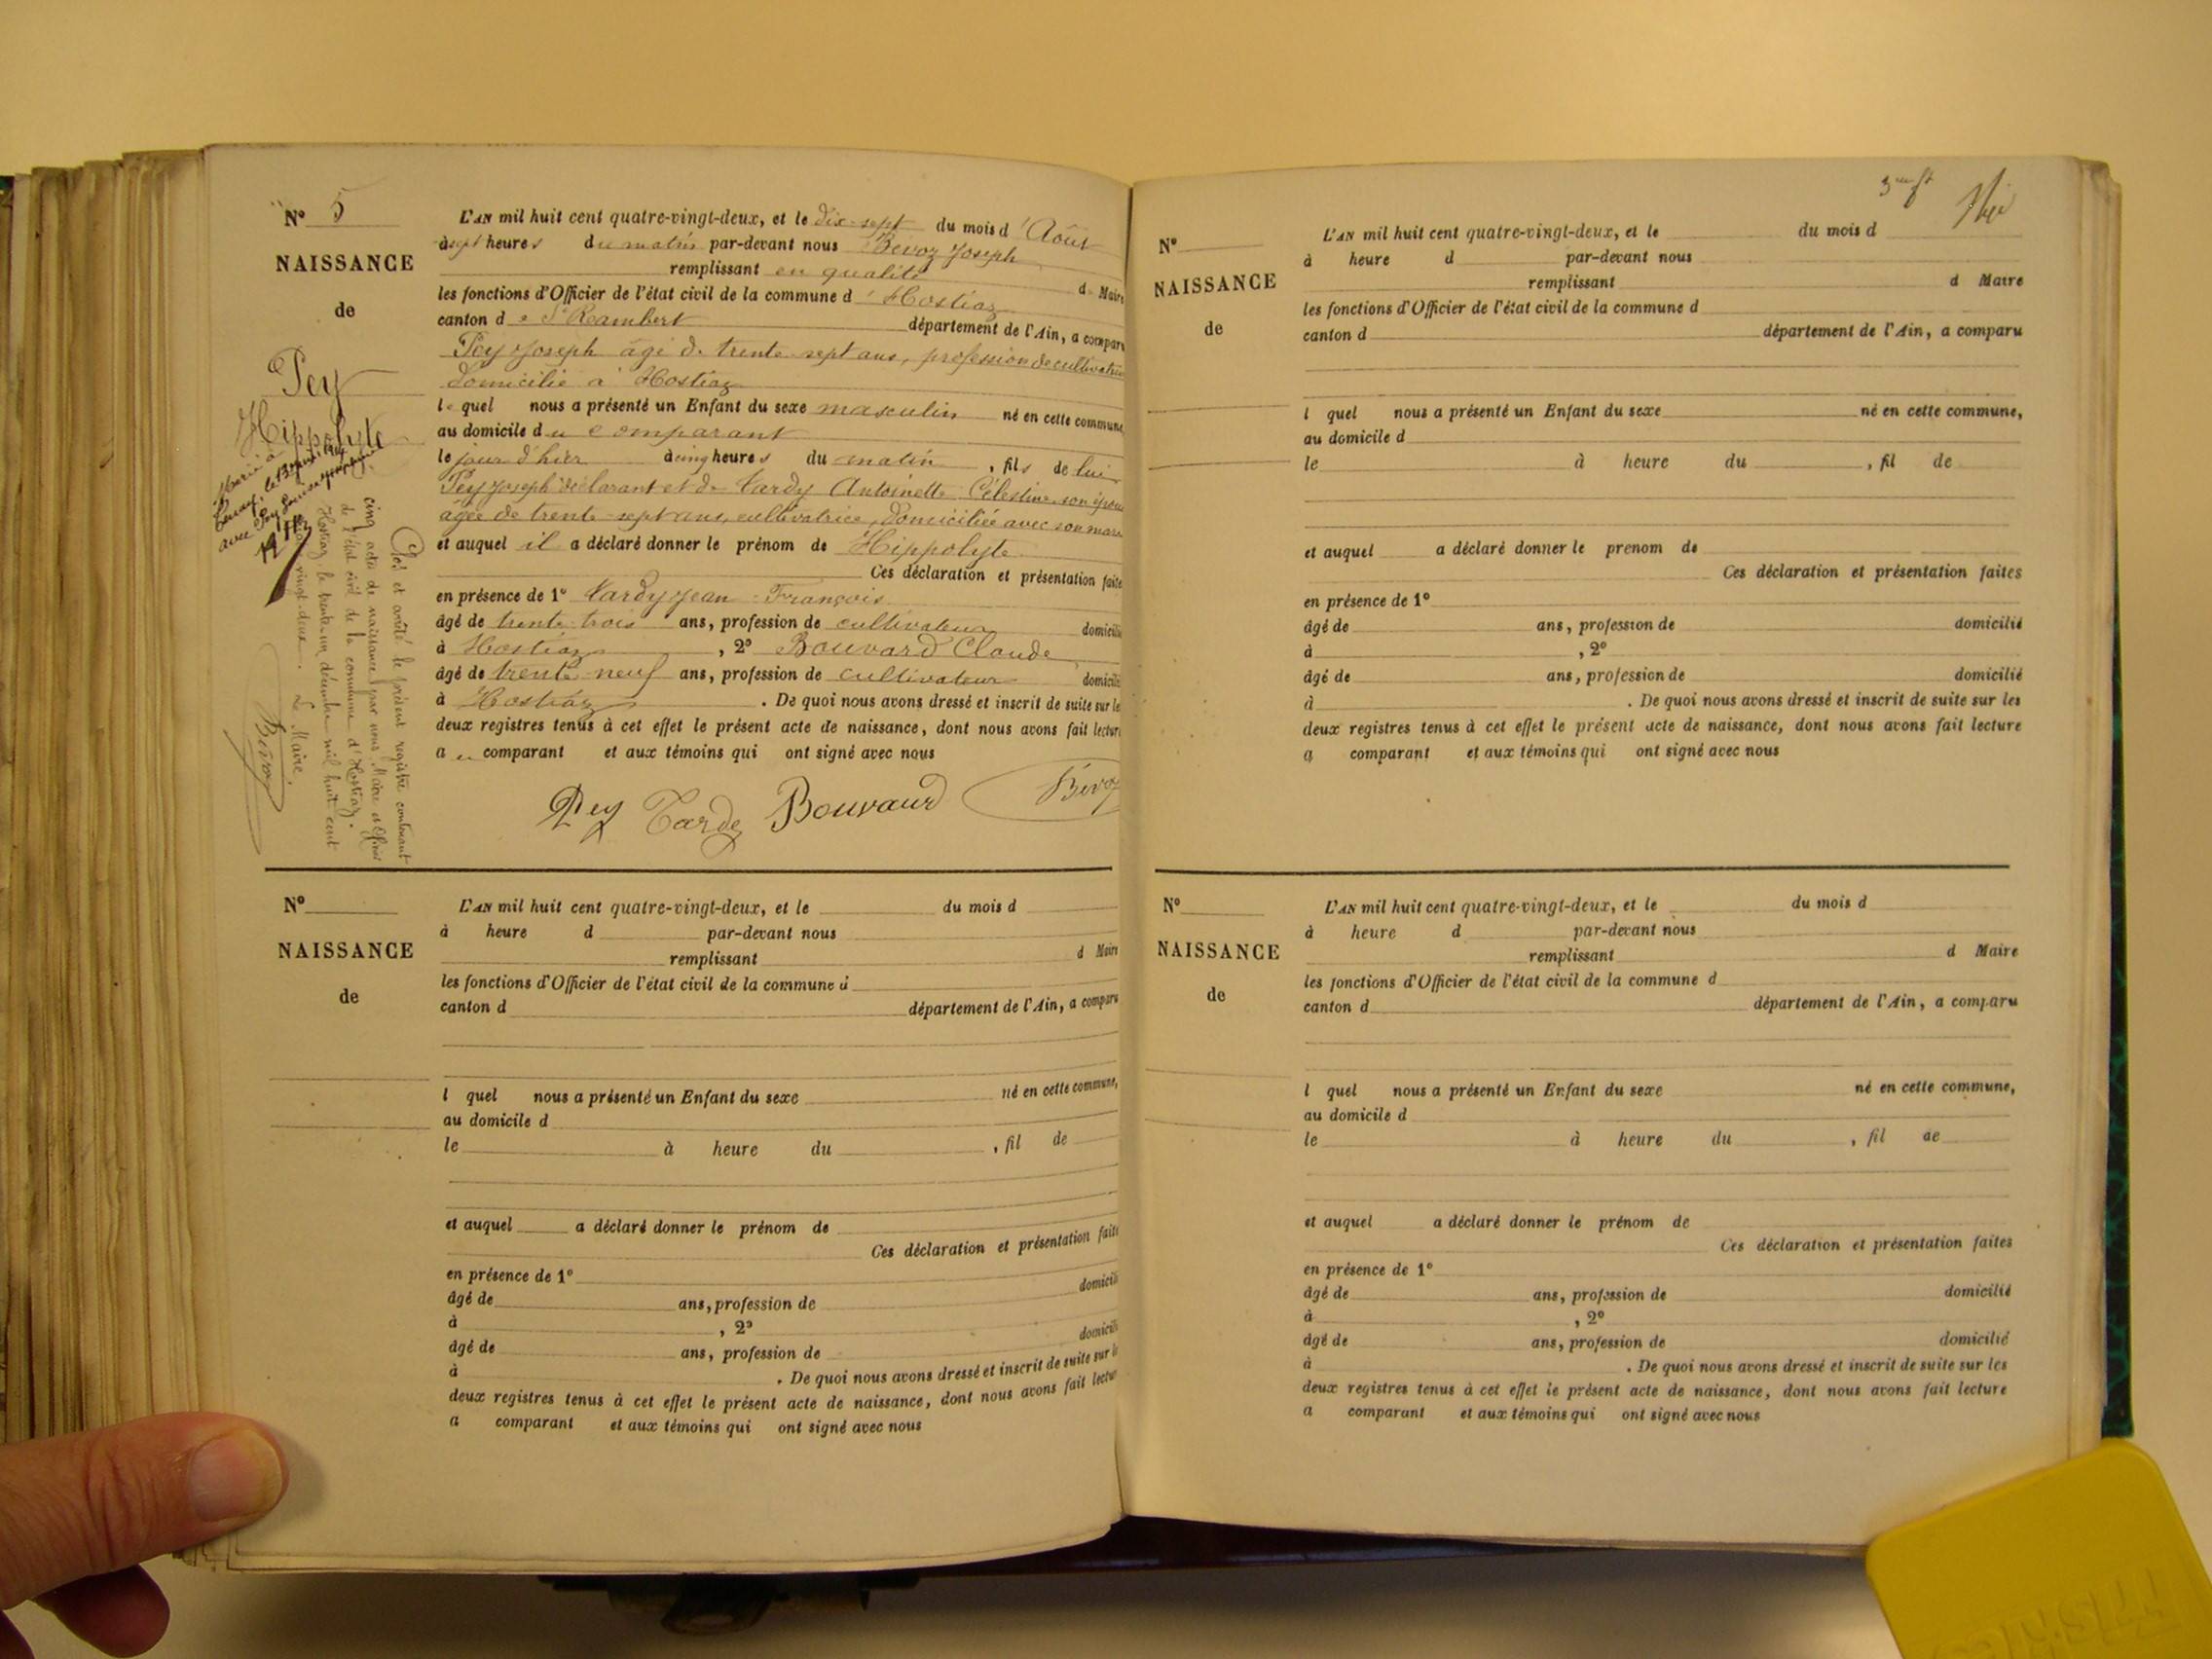 N° 5
NAISSANCE
de
Pey
Hippolyte
Marié à
le 13
avec Pey
L'AN mil huit cent quatre-vingt-deux, et le dix-sept du mois d'Août
à sept heures du matin par-devant nous Bévoz Joseph
remplissant en qualité d Maire
les fonctions d'Officier de l'état civil de la commune d'Hostiaz
canton de St Rambert département de l'Ain, a comparu
Pey Joseph âgé de trente sept ans, profession de cultivateur
domicilié à Hostiaz
lequel nous a présenté un Enfant du sexe masculin né en cette commune,
au domicile du comparant
le jour d'hier à cinq heures du matin, fils de lui
Pey Joseph déclarant et de Tardy Antoinette Célestine son épouse
âgée de trente-sept ans, cultivatrice, domiciliée avec son mari
et auquel il a déclaré donner le prénom de Hippolyte
Ces déclaration et présentation faites
en présence de 1° Tardy Jean François
âgé de trente trois ans, profession de cultivateur domicilié
à Hostiaz, 2° Bouvard Claude
âgé de trente neuf ans, profession de cultivateur domicilié
à Hostiaz. De quoi nous avons dressé et inscrit de suite sur les
deux registres tenus à cet effet le présent acte de naissance, dont nous avons fait lecture
au comparant et aux témoins qui ont signé avec nous
Pey Tardy Bouvard Bévoz
Clos et arrêté le présent registre contenant
cinq actes de naissance par nous Maire et Officier
de l'état civil de la commune d'Hostiaz.
Hostiaz le trente-un décembre mil huit cent
vingt-deux. Le Maire,
Bévoz
N°
NAISSANCE
de
L'AN mil huit cent quatre-vingt-deux, et le du mois d
à heure d par-devant nous
remplissant d Maire
les fonctions d'Officier de l'état civil de la commune d
canton d département de l'Ain, a comparu
l quel nous a présenté un Enfant du sexe né en cette commune,
au domicile d
le à heure du , fil de
et auquel a déclaré donner le prénom de
Ces déclaration et présentation faites
en présence de 1°
âgé de ans, profession de domicilié
à , 2°
âgé de ans, profession de domicilié
à . De quoi nous avons dressé et inscrit de suite sur les
deux registres tenus à cet effet le présent acte de naissance, dont nous avons fait lecture
a comparant et aux témoins qui ont signé avec nous
N°
NAISSANCE
de
L'AN mil huit cent quatre-vingt-deux, et le du mois d
à heure d par-devant nous
remplissant d Maire
les fonctions d'Officier de l'état civil de la commune d
canton d département de l'Ain, a comparu
l quel nous a présenté un Enfant du sexe né en cette commune,
au domicile d
le à heure du , fil de
et auquel a déclaré donner le prenom de
Ces déclaration et présentation faites
en présence de 1°
âgé de ans, profession de domicilié
à , 2°
âgé de ans, profession de domicilié
à . De quoi nous avons dressé et inscrit de suite sur les
deux registres tenus à cet effet le présent acte de naissance, dont nous avons fait lecture
a comparant et aux témoins qui ont signé avec nous
N°
NAISSANCE
de
L'AN mil huit cent quatre-vingt-deux, et le du mois d
à heure d par-devant nous
remplissant d Maire
les fonctions d'Officier de l'état civil de la commune d
canton d département de l'Ain, a comparu
l quel nous a présenté un Enfant du sexe né en cette commune,
au domicile d
le à heure du , fil de
et auquel a déclaré donner le prénom de
Ces déclaration et présentation faites
en présence de 1°
âgé de ans, profession de domicilié
à , 2°
âgé de ans, profession de domicilié
à . De quoi nous avons dressé et inscrit de suite sur les
deux registres tenus à cet effet le présent acte de naissance, dont nous avons fait lecture
a comparant et aux témoins qui ont signé avec nous